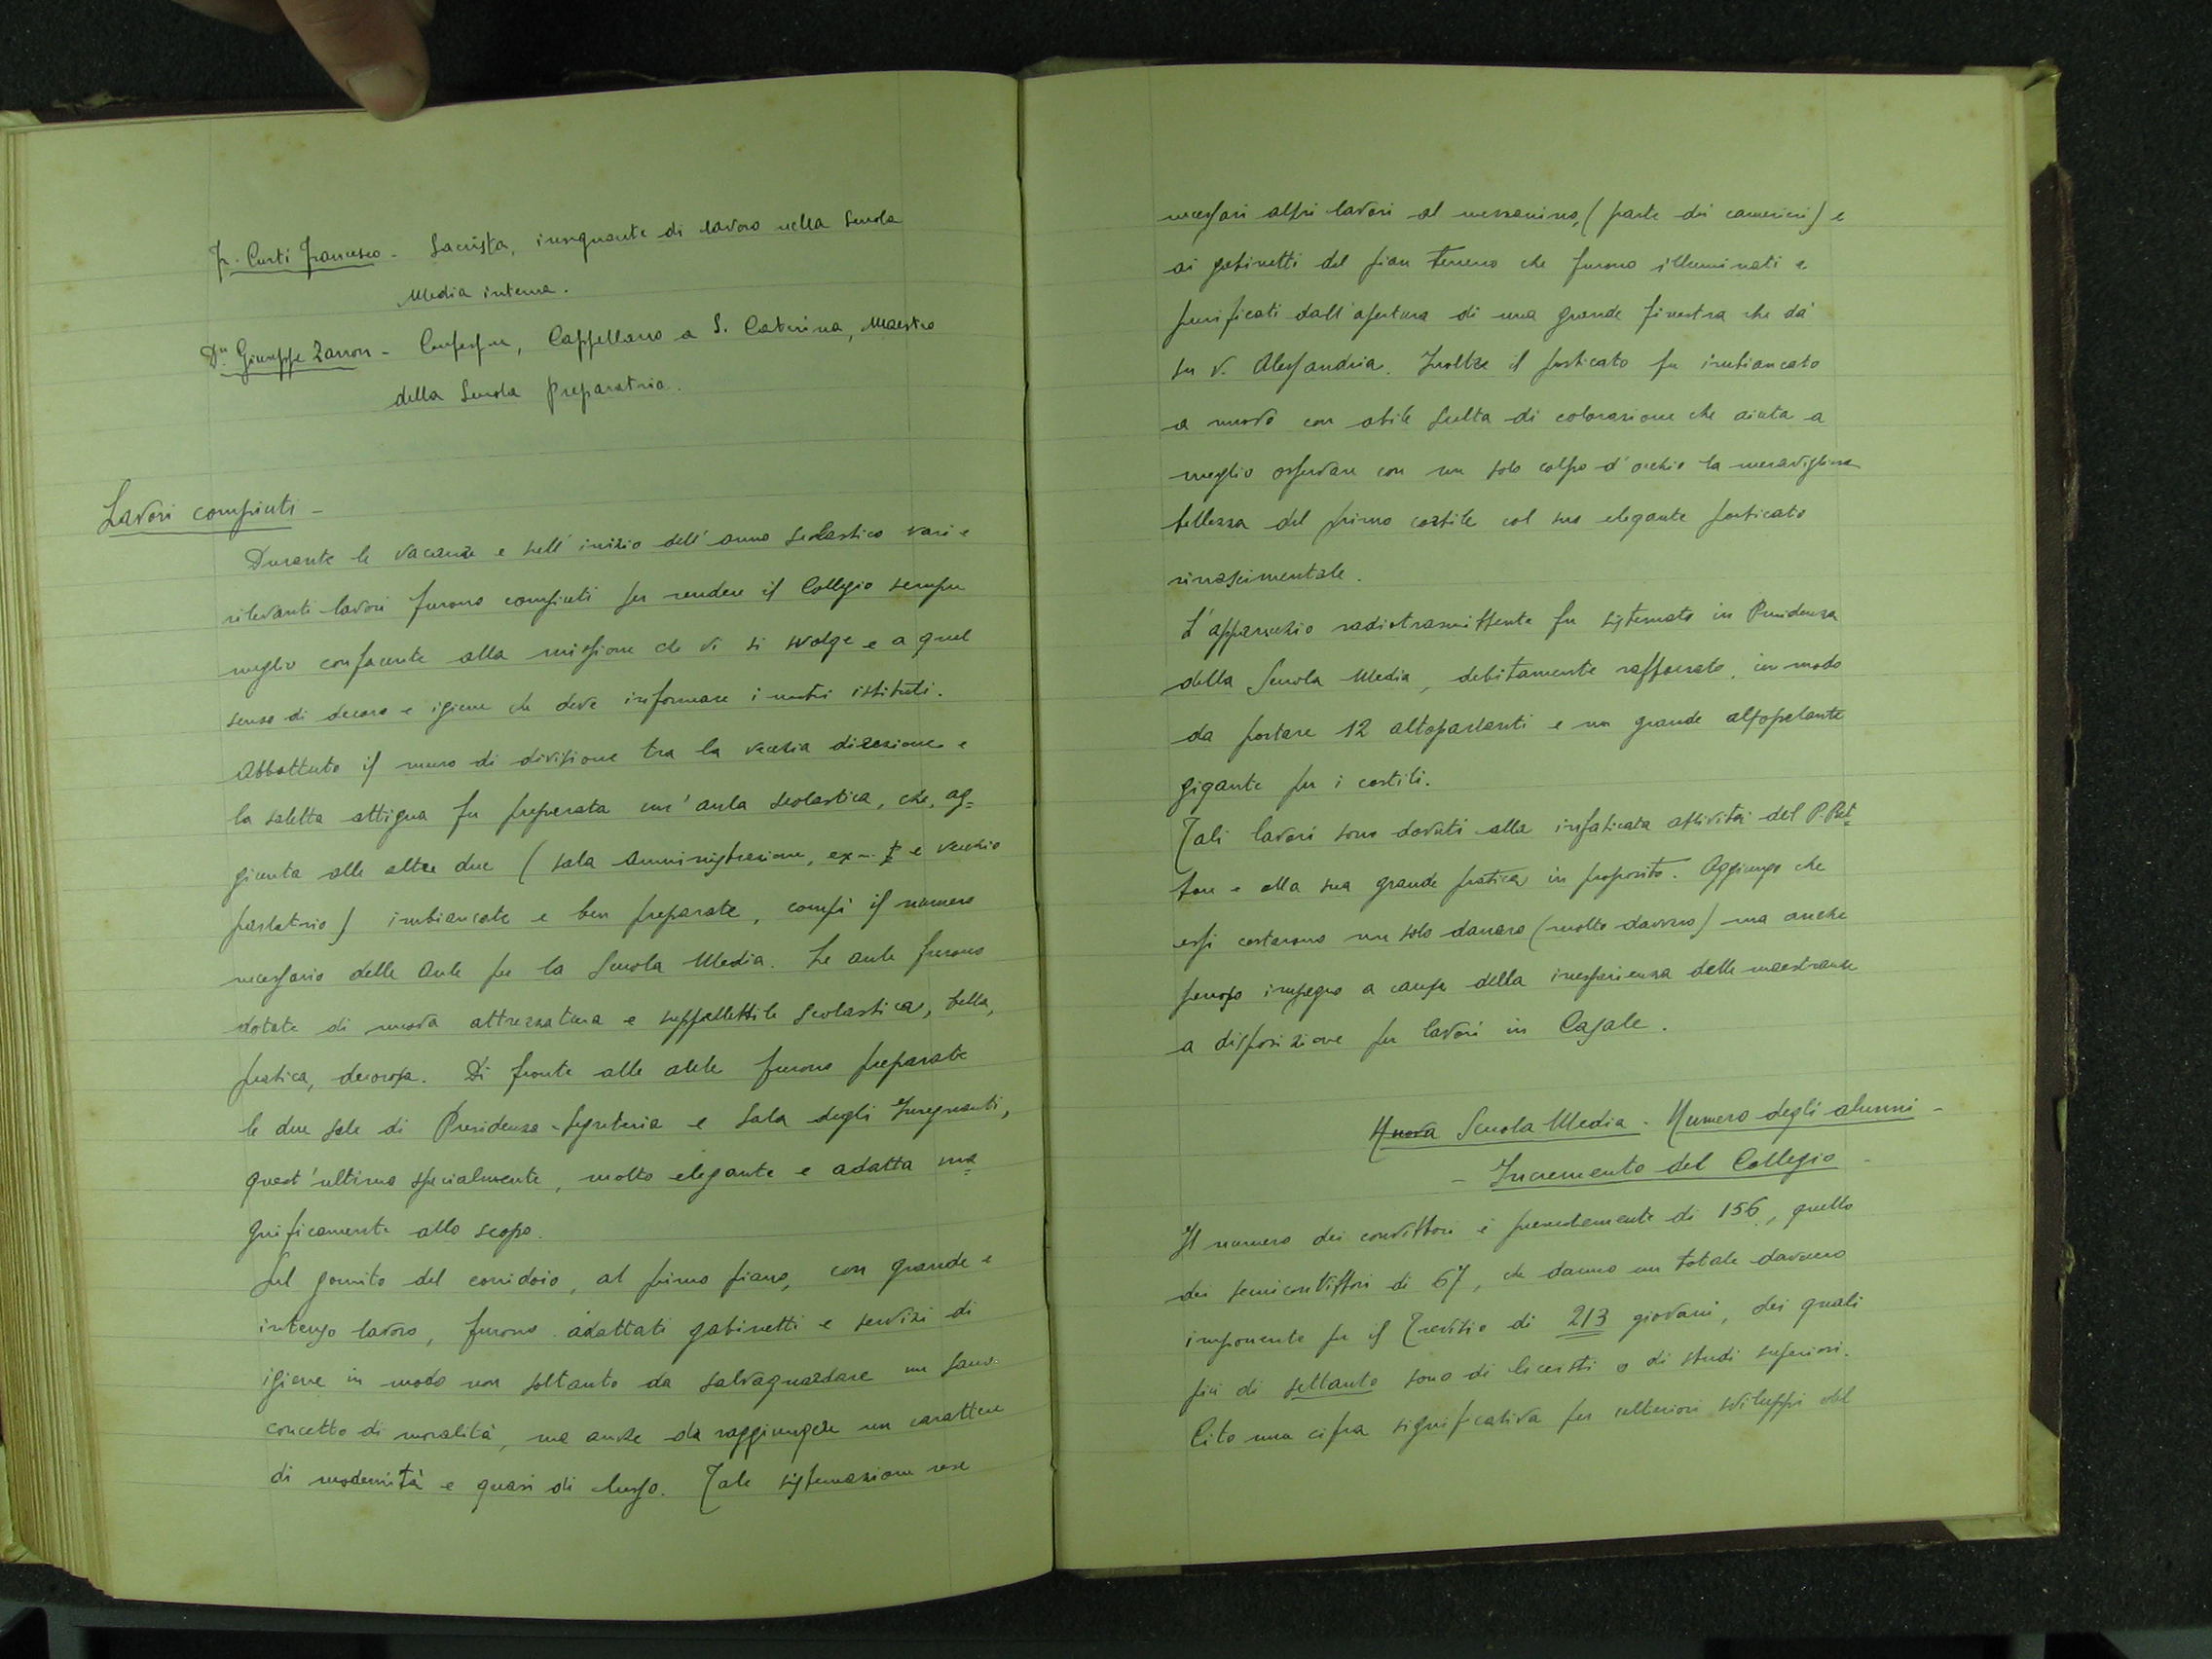 Fr. Curti Francesco - Sacrista, insegnante di lavoro nella Scuola
Media interna.
Dn. Giuseppe Zanon - Confessore, Cappellano a S. Caterina, Maestro
della Scuola Preparatoria.
Lavori compiuti -
Durante le vacanze e nell'inizio dell'anno scolastico vari e
rilevanti lavori furono compiuti per rendere il Collegio sempre
meglio confacente alla missione che vi si svolge e a quel
senso di decoro e igiene che deve informare i nostri istituti.
Abbattuto il muro di divisione tra la vecchia direzione e
la saletta attigua fu preparata un'aula scolastica, che, ag=
giunta alle altre due (sala Amministrazione, ex- e vecchio
parlatorio) imbiancate e ben preparate, compì il numero
necessario delle Aule per la Scuola Media. Le aule furono
dotate di nuova attrezzatura e suppellettile scolastica, bella,
pratica, decorosa. Di fronte alle aule furono preparate
le due sale di Presidenza-Segreteria e Sala degli Insegnanti,
quest'ultima specialmente, molto elegante e adatta ma=
gnificamente allo scopo.
Sul gomito del corridoio, al primo piano, con grande e
intenso lavoro, furono adattati gabinetti e servizi di
igiene in modo non soltanto da salvaguardare un sano
concetto di moralità, ma anche da raggiungere un carattere
di modernità e quasi di lusso. Tale sistemazione rese
necessari altri lavori al mezzanino, (parte dei camerieri) e
ai gabinetti del pian terreno che furono illuminati e
purificati dall'apertura di una grande finestra che dà
su v. Alessandria. Inoltre il porticato fu imbiancato
a nuovo con abile scelta di colorazione che aiuta a
meglio osservare con un solo colpo d'occhio la meravigliosa
bellezza del primo cortile col suo elegante porticato
rinascimentale.
L'apparecchio radiotrasmittente fu sistemato in Presidenza
della Scuola Media, debitamente rafforzato, in modo
da portare 12 altoparlanti e un grande altoparlante
gigante per i cortili.
Tali lavori sono dovuti alla infaticata attività del P. Ret=
tore e alla sua grande pratica in proposito. Aggiungo che
essi costarono non solo danaro (molto davvero) ma anche
penoso impegno a causa della inesperienza delle maestranze
a disposizione per lavori in Casale.
Nuova Scuola Media - Numero degli alunni -
- Incremento del Collegio -
Il numero dei convittori è presentemente di 156, quello
dei semiconvittori di 67, che danno un totale davvero
imponente per il Trevisio di 213 giovani, dei quali
più di settanta sono di liceisti o di studi superiori.
Cito una cifra significativa per ulteriori sviluppi del